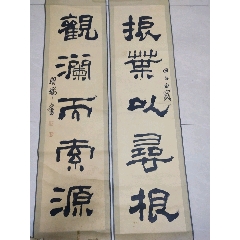 振葉以尋根
觀瀾而索源